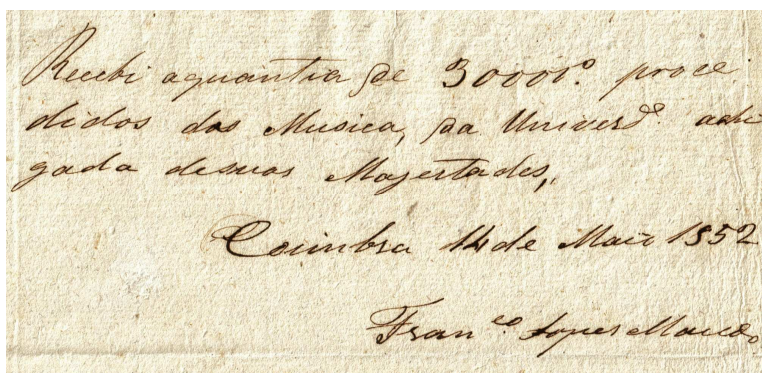 Recebi aquantia de 30000rs. proce
didos das Musica, da Univerde.
gada desuas Majestades,,
Coimbra 14 de Maio 1852
Franco Lopes